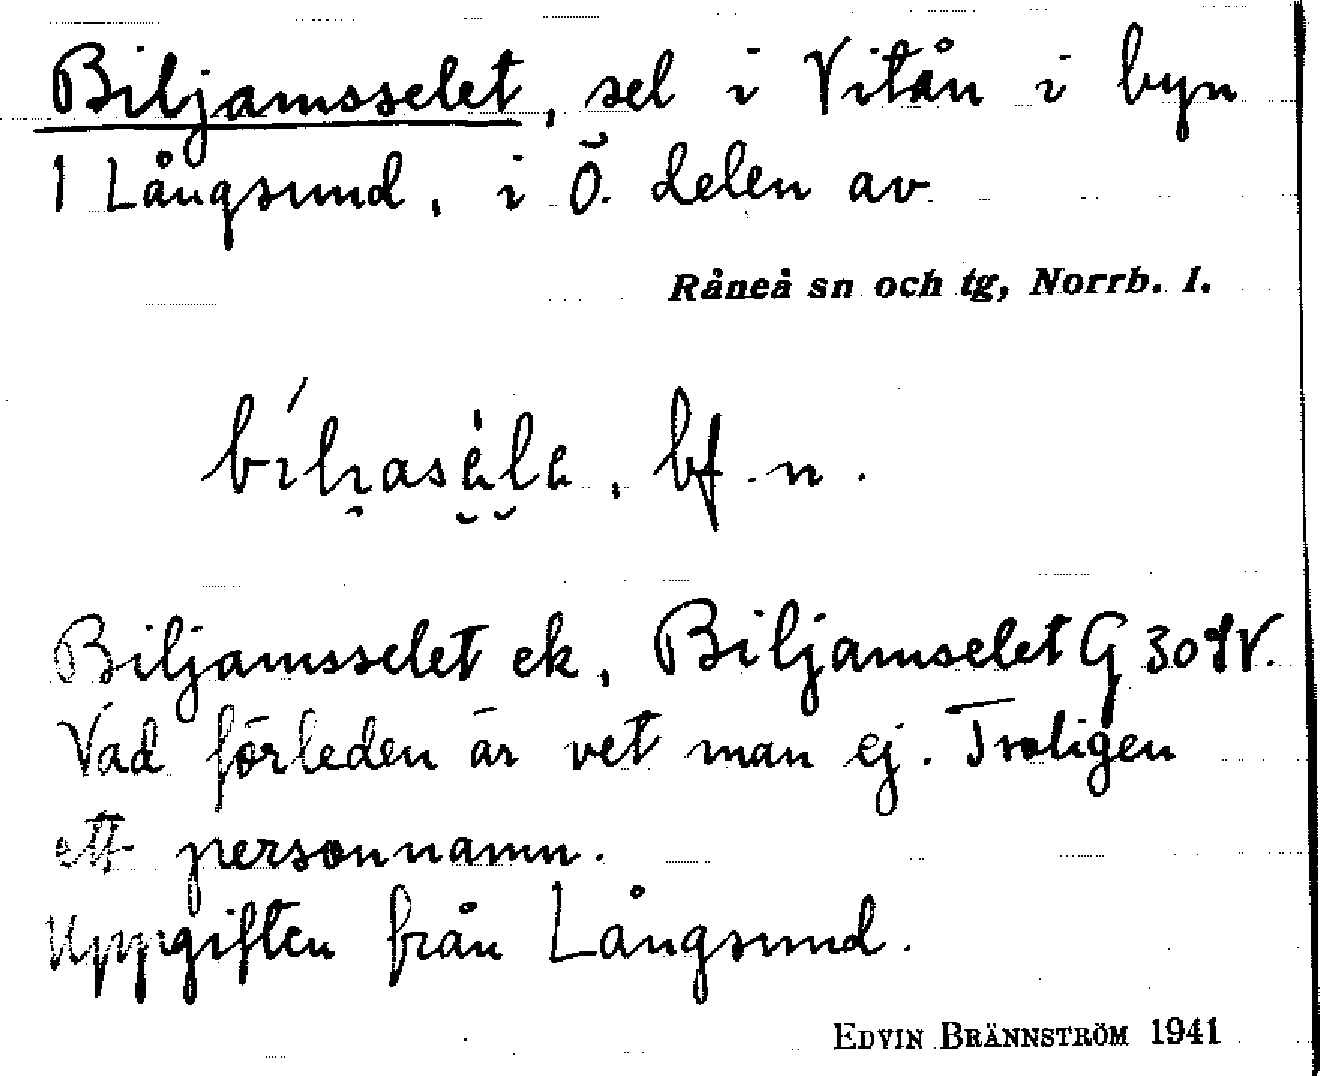 Biljamsselet, sel i Vitån i byn
1 Långsund, i Ö. delen av
Råneå sn och tg, Norrb. l.
bf. n.
Biljamsselet ek, Biljamselet G 30 SV.
Vad förleden är vet man ej. Troligen
ett personnamn.
Uppgiften från Långsund.
EDVIN BRÄNNSTRÖM 1941